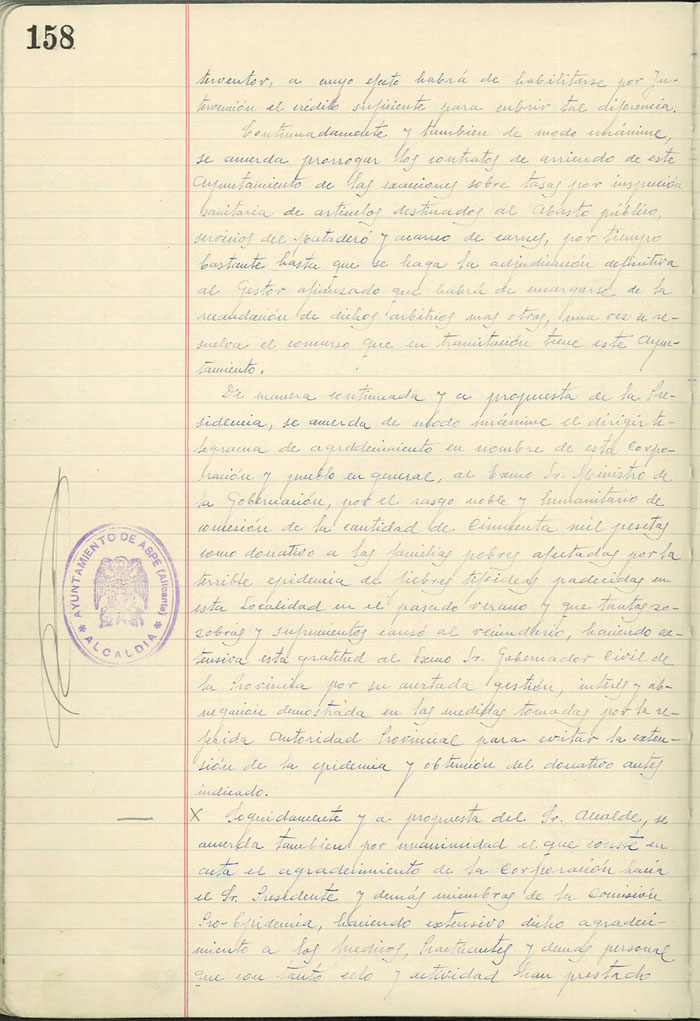 158
terventor, a cuyo efecto habrá de habilitarse por In-
tervención el crédito suficiente para cubrir tal diferencia.
Continuadamente y tambien de modo unánime,
se acuerda prorrogar los contratos de arriendo de este
Ayuntamiento de las exacciones sobre tasas por inspección
sanitaria de artículos destinados al Abasto público,
servicios del Matadero y acarreo de carnes, por tiempo
bastante hasta que se haga la adjudicación definitiva
al Gestor afianzado que habrá de encargarse de la
recaudación de dichos arbitrios mas otros, una vez se re-
suelva el concurso que en tramitación tiene este Ayun-
tamiento.
De manera continuada y a propuesta de la Pre-
sidencia, se acuerda de modo unánime el dirigir te-
legrama de agradecimiento en nombre de esta Corpo-
ración y pueblo en general, al Excmo Sr. Ministro de
la Gobernación, por el rasgo noble y humanitario de
concesión de la cantidad de Cincuenta mil pesetas
como donativo a las familias pobres afectadas por la
terrible epidemia de fiebres tifoideas padecidas en
esta Localidad en el pasado verano y que tantas zo-
zobras y sufrimentos causó al vecindario, haciendo ex-
tensiva esta gratitud al Excmo Sr. Gobernador Civil de
la Provincia por su acertada gestión, interés y ab-
negación demostrada en las medidas tomadas por la re-
ferida Autoridad Provincial para evitar la exten-
sión de la epidemia y obtención del donativo antes
indicado.
X Seguidamente y a propuesta del Sr. Alcalde, se
acuerda tambien por unanimidad el que conste en
acta el agradecimiento de la Corporación hacia
el Sr. Presidente y demás miembros de la Comisión
Pro-Epidemia, haciendo extensivo dicho agradeci-
miento a los Medicos, Practicantes y demás personal
que con tanto celo y actividad han prestado
AYUNTAMIENTO DE ASPE (Alicante)
* ALCALDIA *